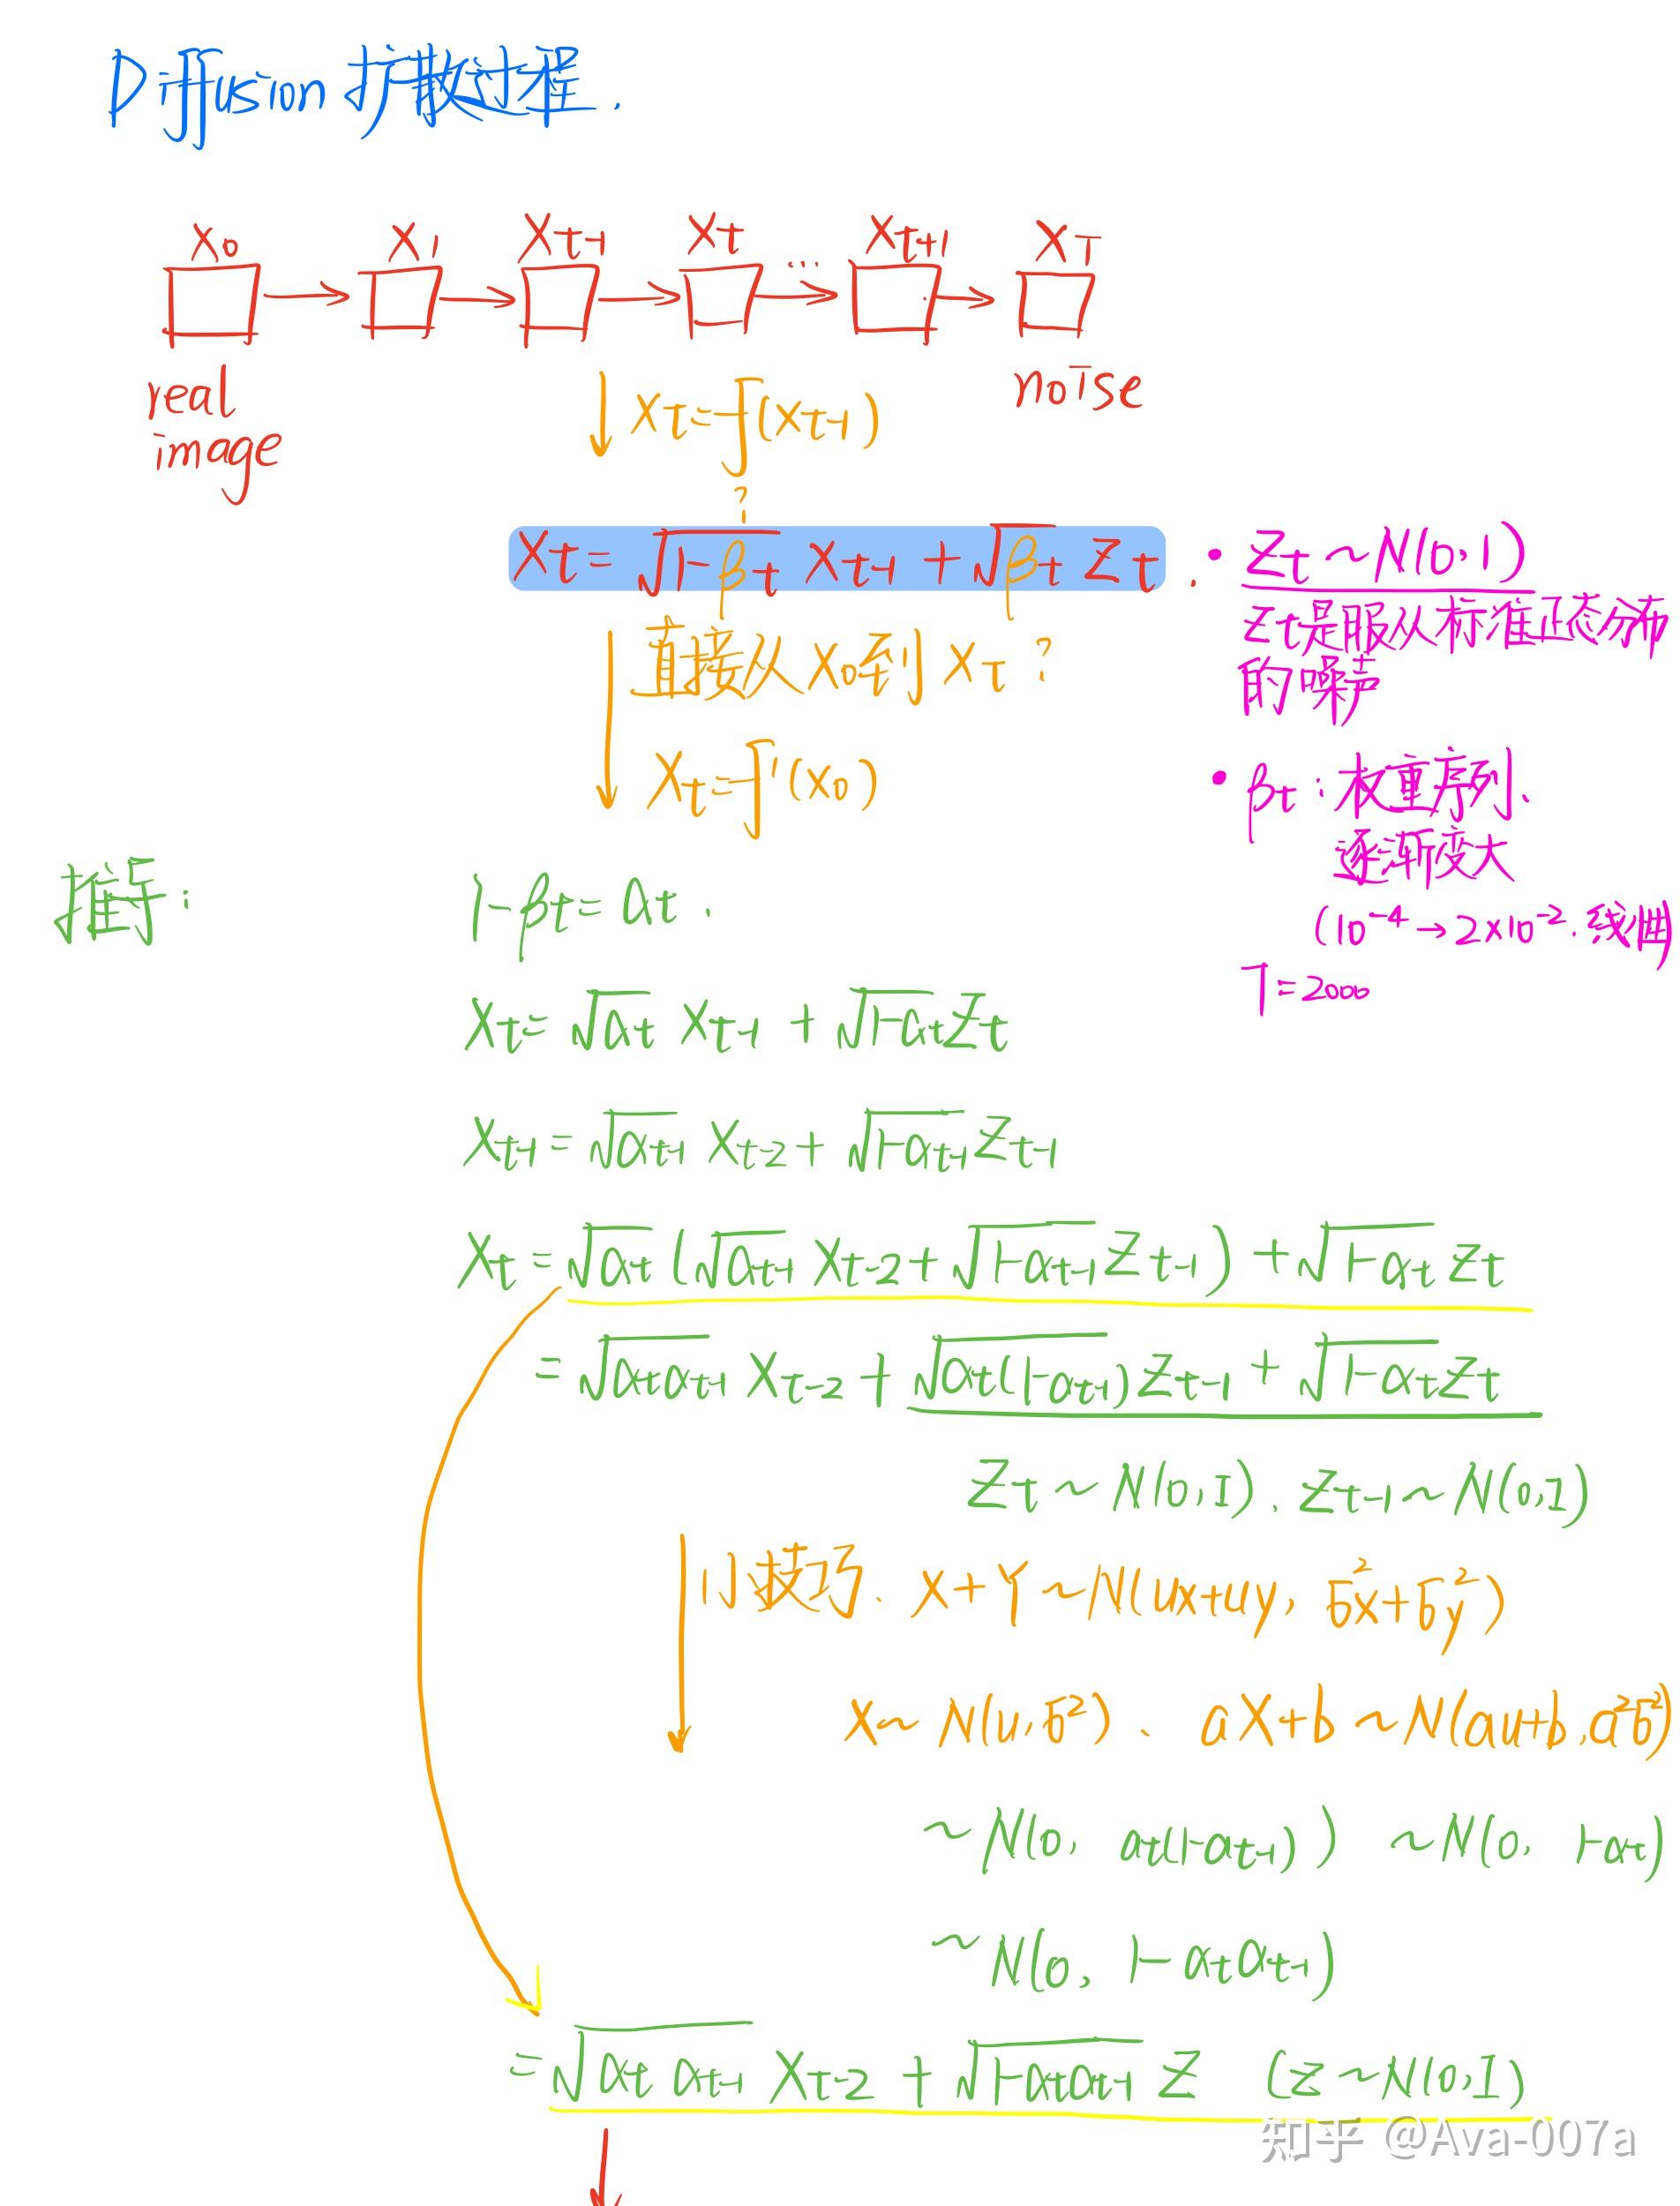 Diffusion 扩散过程.
X0 X1 Xt-1 Xt ... Xt+1 XT
real image
noise
Xt=f(Xt-1)
?
Xt=√(1-βt) Xt-1 + √βt Zt.
直接从X0到Xt?
Xt=f'(X0)
· Zt~N(0,1)
Zt是服从标准正态分布
的噪声
· βt:权重序列、
逐渐变大
(10^-4→2×10^-2.线性)
T=2000
推导:
1-βt=αt.
Xt=√αt Xt-1 + √(1-αt) Zt
Xt-1=√αt-1 Xt-2+√(1-αt-1) Zt-1
Xt=√αt (√αt-1 Xt-2+√(1-αt-1) Zt-1) + √(1-αt) Zt
=√(αtαt-1) Xt-2+√(αt(1-αt-1)) Zt-1 + √(1-αt) Zt
Zt~N(0,I). Zt-1~N(0,I)
小技巧. X+Y~N(ux+uy, σx²+σy²)
X~N(u,σ²)、 aX+b~N(au+b,a²σ²)
~N(0, αt(1-αt-1)) ~N(0, 1-αt)
~N(0, 1-αtαt-1)
=√(αt αt-1) Xt-2 + √(1-αtαt-1) Z (Z~N(0,I)
知乎 @Ava-007a